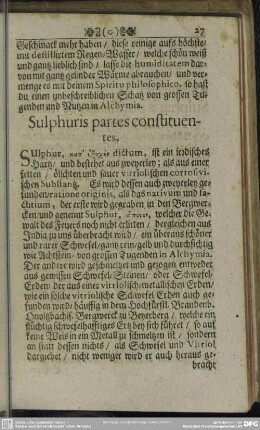 27
Geschmack mehr haben / diese reinige auffs höchste/
mit destillirtem Regen-Wasser / welche schön weiß
und gantz lieblich sind / lasse die humiditatem dar-
von mit gantz gelinder Wärme abrauchen / und ver-
menge es mit deinem Spiritu philosophico, so hast
du einen unbeschreiblichen Schatz von grossen Tu-
genden und Nutzen in Alchymia.
Sulphuris partes constituen-
tes.
Sulphur, κατ' ἐξοχὴν dictum, ist ein indisches
Hartz / und bestehet aus zweyerley; als aus einer
fetten / ölichten und sauer vitriolischen corrosivi-
schen Substantz. Es wird dessen auch zweyerley ge-
funden / ratione originis, als das nativum und fa-
ctitium, der erste wird gegraben in den Bergwer-
cken / und genennt Sulphur, welcher die Ge-
walt des Feuers noch nicht erlitten / dergleichen aus
India zu uns überbracht wird / ein überaus schöner
und rarer Schwefel / gantz rein / gelb und durchsichtig
wie Achtstein / von grossen Tugenden in Alchymia.
Der andere wird geschmeltzt und gezogen entweder
aus gewissen Schwefel-Steinen / oder Schwefel-
Erden / der aus einer vitriolisch metallischen Erden /
wie ein solche vitriolische Schwefel Erden auch ge-
funden wird / häuffig in dem Hochfürstl. Brandenb.
Onoltzbachis. Bergwerck zu Beyerberg / welche ein
flüchtig schwefelhafftiges Ertz bey sich führet / so auf
keine Weis in ein Metall zu schmeltzen ist / sondern
an statt dessen nichts / als Schwefel und Vitriol
dargebet / nicht weniger wird er auch heraus ge-
bracht